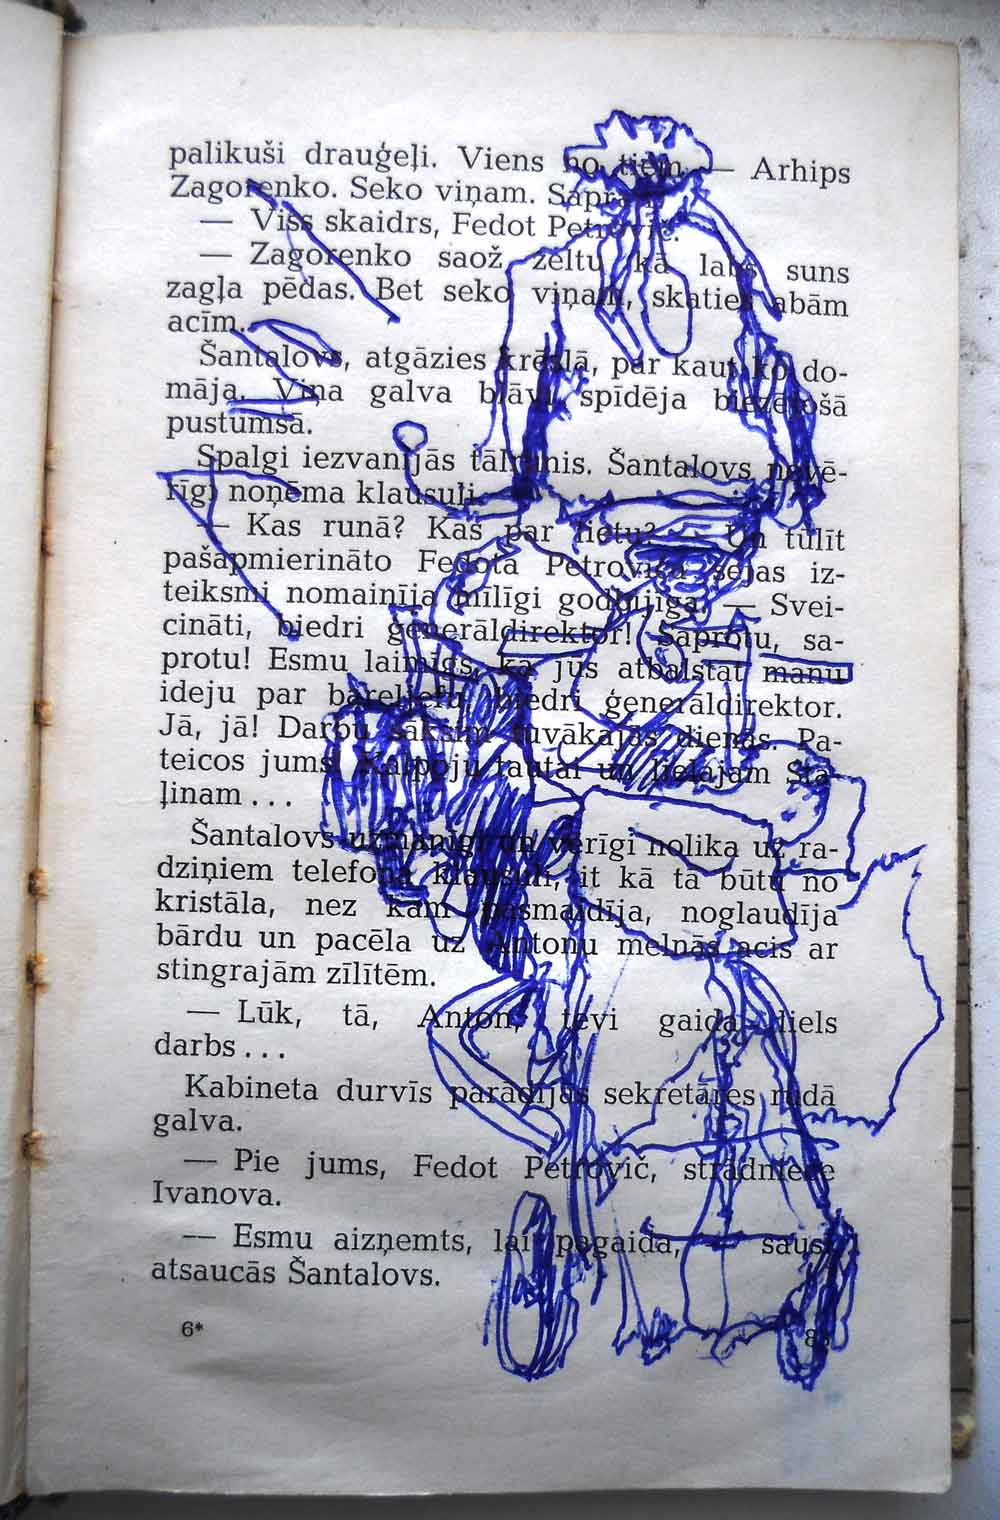 palikuši drauģeļi. Viens no tiem — Arhips
Zagorenko. Seko viņam. Saprati?
— Viss skaidrs, Fedot Petrovič.
— Zagorenko saož zeltu kā labs suns
zagļa pēdas. Bet seko viņam, skaties abām
acīm.
Šantalovs, atgāzies krēslā, par kaut ko do-
māja. Viņa galva blāvi spīdēja biezējošā
pustumsā.
Spalgi iezvanījās tālrunis. Šantalovs nevē-
rīgi noņēma klausuli.
— Kas runā? Kas par lietu? — Un tūlīt
pašapmierināto Fedota Petroviča sejas iz-
teiksmi nomainīja mīlīgi godbijīga. — Svei-
cināti, biedri ģenerāldirektor! Saprotu, sa-
protu! Esmu laimīgs, ka jūs atbalstāt manu
ideju par bareljefu, biedri ģenerāldirektor.
Jā, jā! Darbu sāksim tuvākajās dienās. Pa-
teicos jums! Kalpoju tautai un lielajam Sta-
ļinam . . .
Šantalovs uzmanīgi un vērīgi nolika uz ra-
dziņiem telefona klausuli, it kā tā būtu no
kristāla, nez kam pasmaidīja, noglaudīja
bārdu un pacēla uz Antonu melnās acis ar
stingrajām zīlītēm.
— Lūk, tā, Anton, tevi gaida liels
darbs . . .
Kabineta durvīs parādījās sekretāres rudā
galva.
— Pie jums, Fedot Petrovič, strādniece
Ivanova.
— Esmu aizņemts, lai pagaida, — sausi
atsaucās Šantalovs.
6*